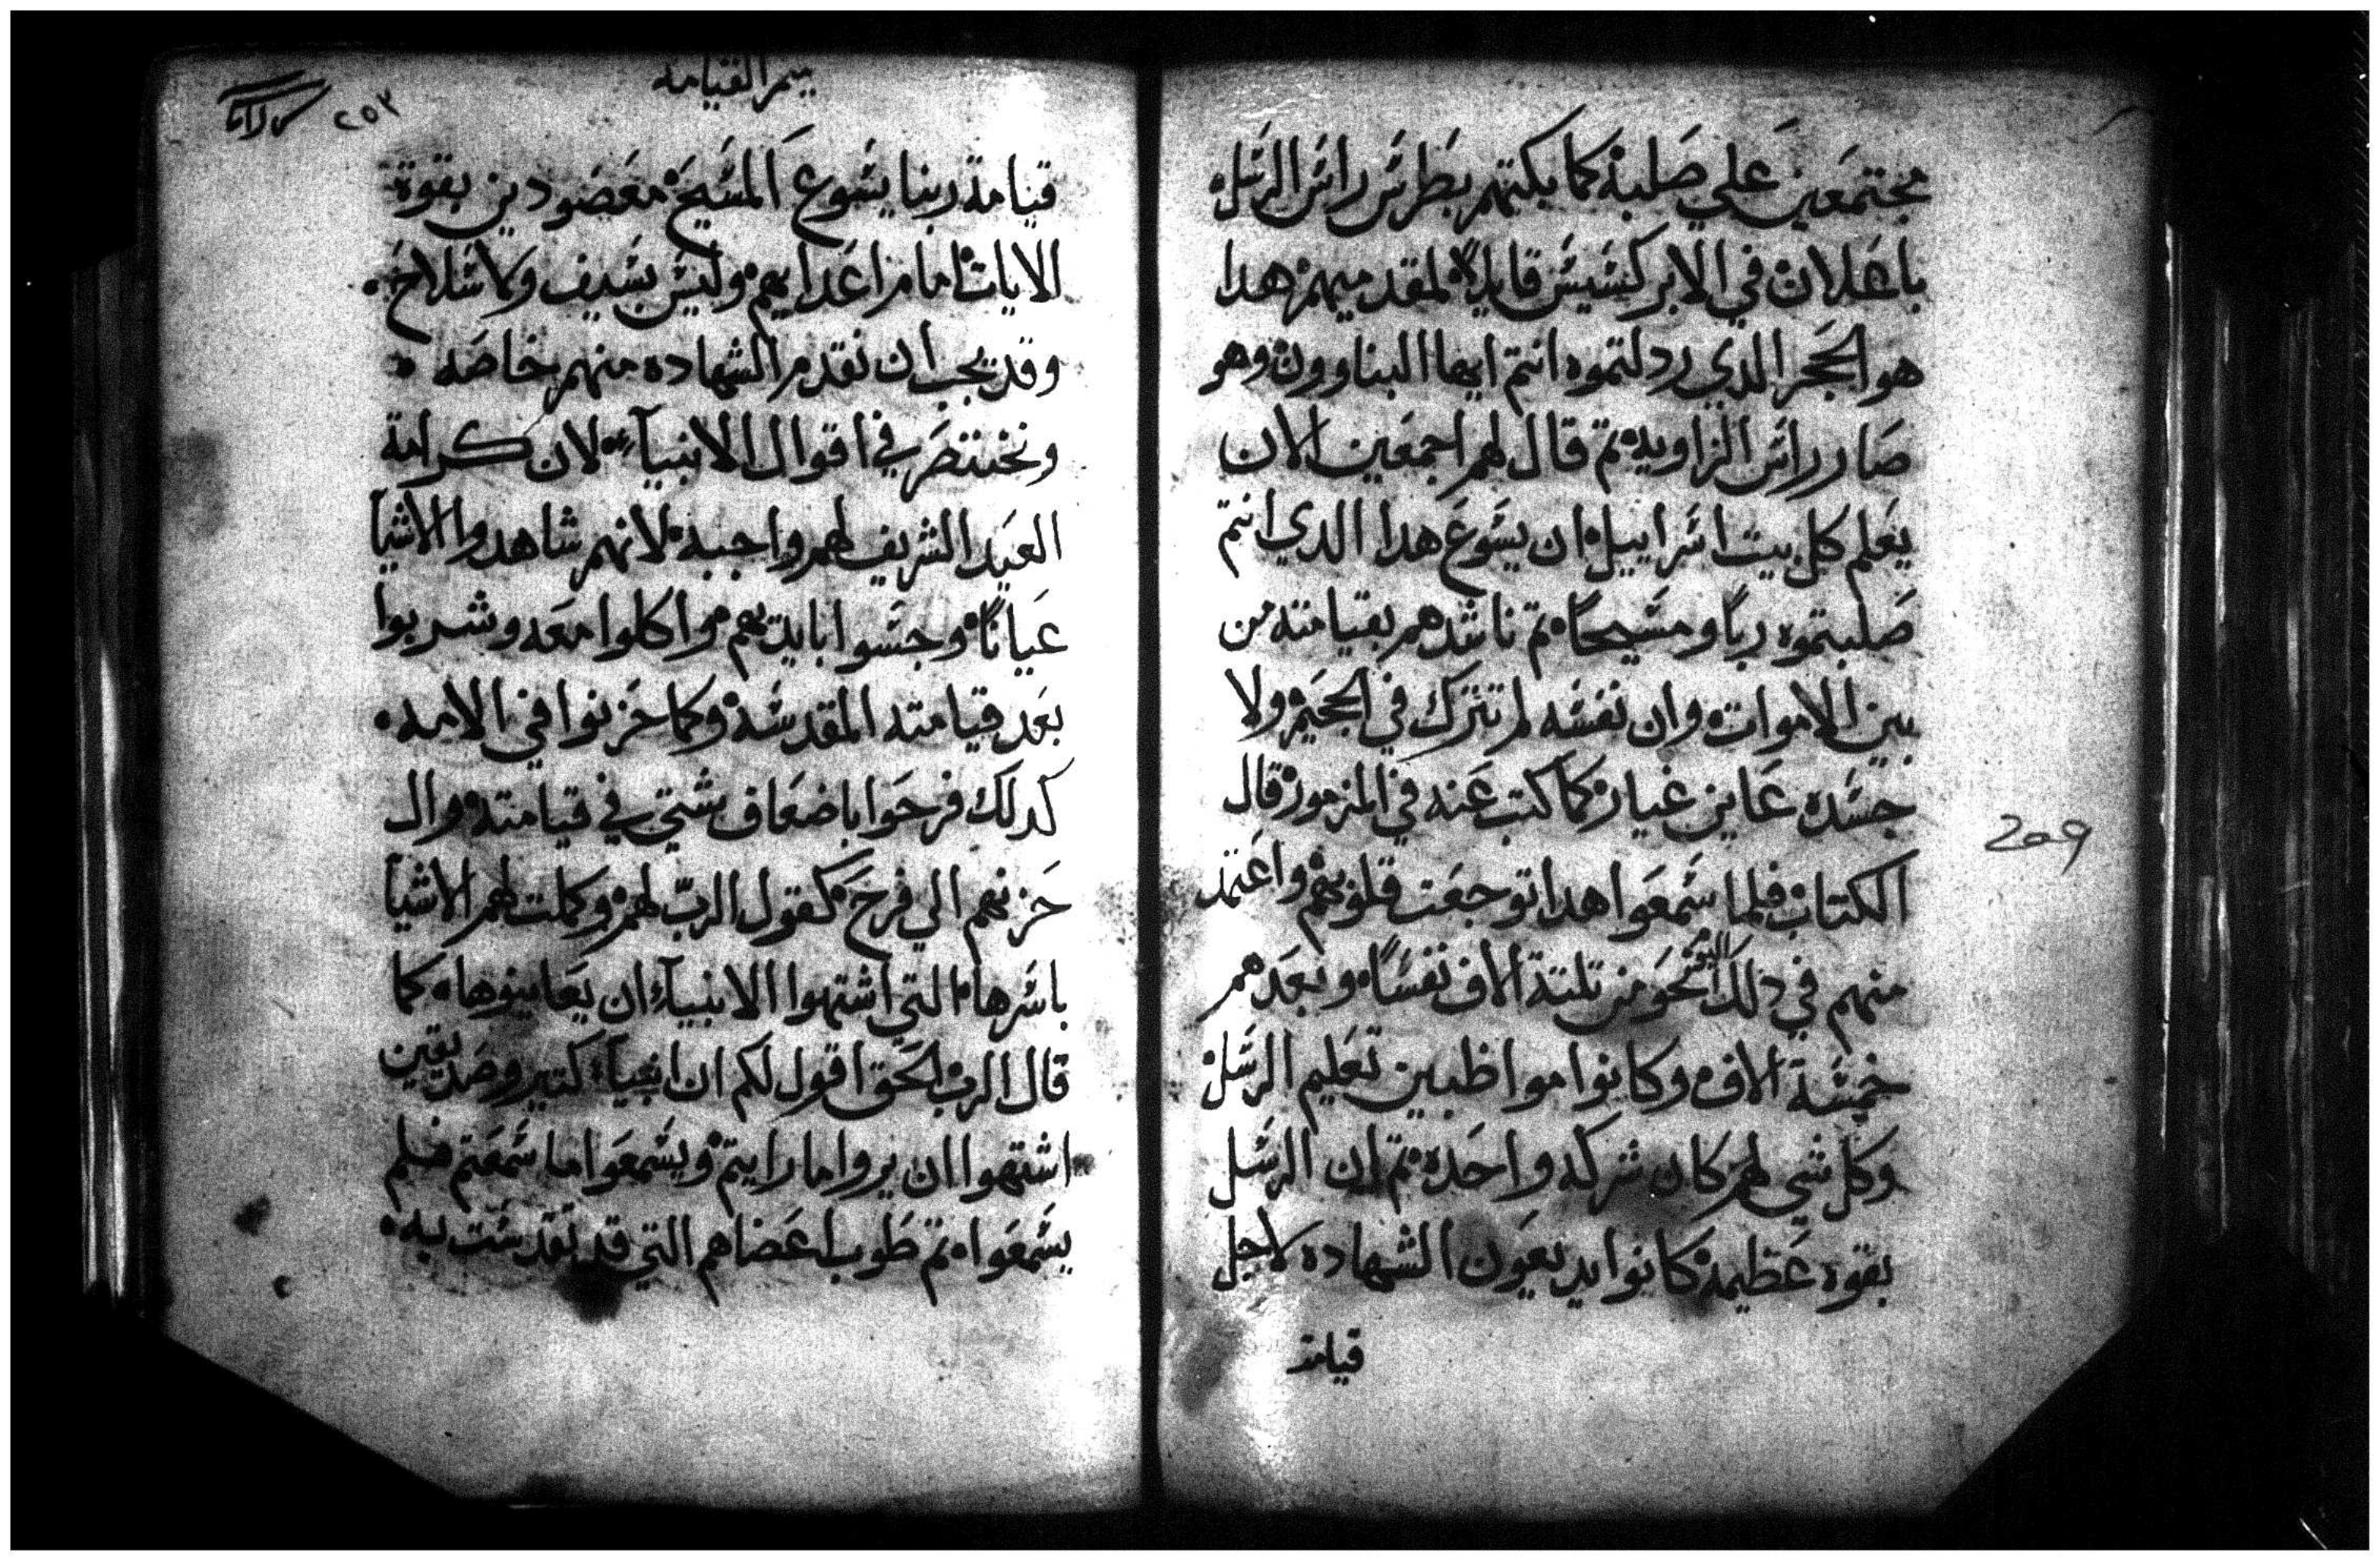 مجتمعين علي صلبه كما يكتهم بطرس راس الرسل
باعلان في الابركسيس قايلا لمقدميهم هدا
هو الحجر الدي ردلتموه انتم ايها البناوون وهو
صار راس الزاويه تم قال لهم اجمعين الان
يعلم كل بيت اسراييل ان يسوع هدا الدي انتم
صلبتموه ربًا ومسيحًا تم ناشدهم بقيامته من
بين الاموات وان نفسه لم تترك في الجحيم ولا
جسده عاين غيار كما كتب عنه في المزمور قال
الكتاب فلما سمعوا هدا توجعت قلوبهم واعتمد
منهم في دلك اليوم نحو من تلتة الاف نفسًا وبعدهم
خمسة الاف وكانوا مواظبين تعليم الرسل
وكل شي لهم كان شركه واحده تم ان الرسل
بقوه عظيمه كانوا يديعون الشهاده لاجل
قيامة
ميمر القيامه
٢٥٣
قيامة ربنا يسوع المسيح معضودين بقوة
الايات امام اعدايهم وليس بسيف ولا سلاح
وقد يجب ان نقدم الشهاده منهم بخاصه
ونختصر في اقوال الانبيآء لان كرامة
العيد الشريف لهم واجبه لانهم شاهدوا الاشيآ
عيانًا وجسوا بايديهم واكلوا معه وشربوا
بعد قيامته المقدسه وكما حزنوا في الامه
كدلك فرحوا باضعاف شتي في قيامته وال
حزنهم الي فرح كقول الرب لهم وكملت لهم الاشيآ
باسرها التي اشتهوا الانبيآء ان يعاينوها كما
قال الرب الحق اقول لكم ان انبيآء كتير وصديقين
اشتهوا ان يروا ما رايتم ويسمعوا ما سمعتم فلم
يسمعوا تم طوب اعضاهم التي قد تقدست به